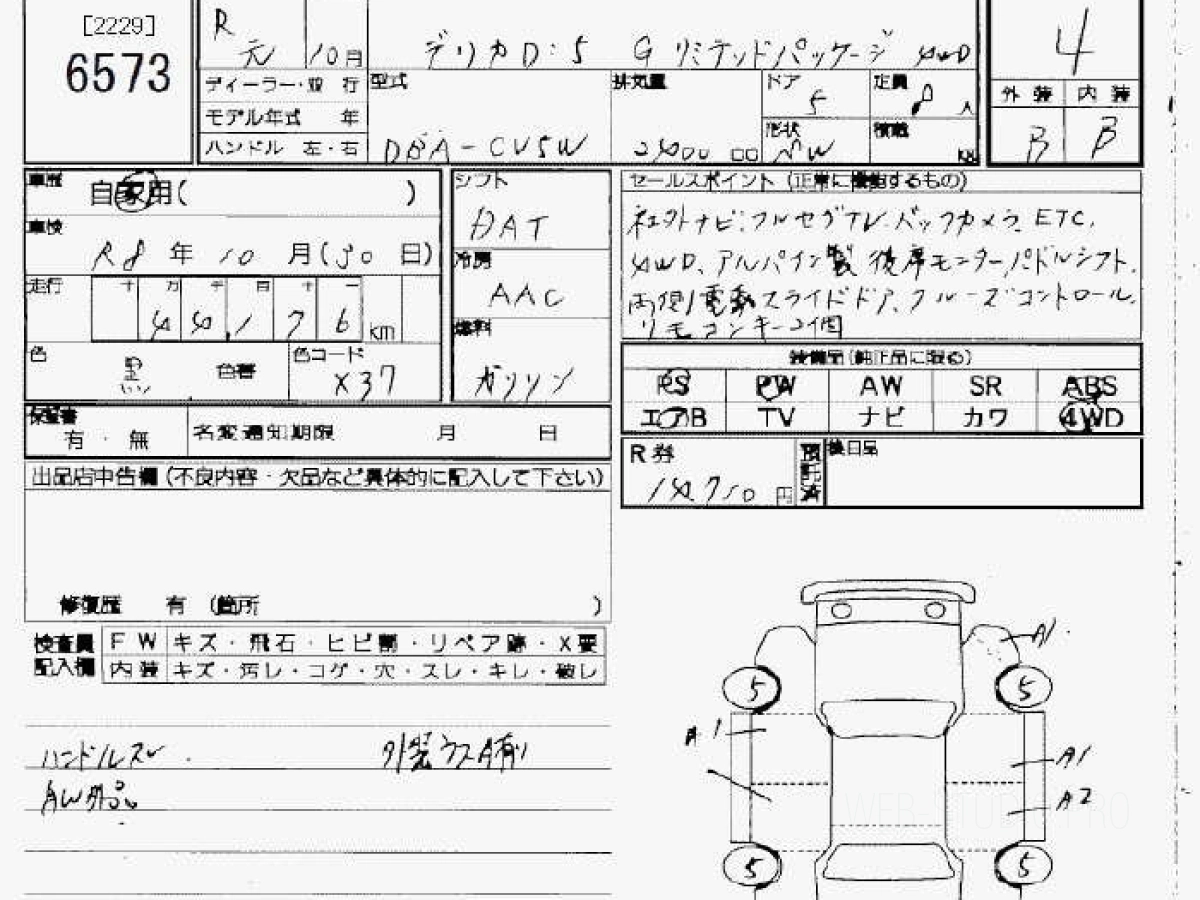 [2229]
6573
R
元 10月
デリカD:5 G リミテッドパッケージ 4WD
4
ディーラー・並 行
型式
排気量
ドア
5
定員
8 人
外装 内装
モデル年式 年
形状
積載
B B
ハンドル 左・右
DBA-CV5W
2400 cc
kg
車歴
自家用( )
シフト
DAT
セールスポイント (正常に機能するもの)
社外ナビ:フルセグTV.バックカメラ ETC.
4WD、アルパイン製 後席モニター,パドルシフト,
両側電動スライドドア,クルーズコントロール,
リモコンキー2個
車検
R8 年 10 月(30 日)
冷房
AAC
走行
十 万 千 百 十 一
44,176 km
燃料
ガソリン
色
黒
色番
色コード
X37
装備品(純正品に限る)
PS PW AW SR ABS
エアB TV ナビ カワ 4WD
保証書
有・無
名変通知期限 月 日
R券
14710 円
預託済
後日品
出品店申告欄(不良内容・欠品など具体的に記入して下さい)
修復歴 有 (箇所 )
検査員
記入欄
F W キズ・飛石・ヒビ割・リペア跡・X要
内 装 キズ・汚レ・コゲ・穴・スレ・キレ・破レ
ハンドルスレ
外装ウスA有り
AW外品
A1
5 5
A1
A1
A2
5 5
WEB STUDIO PRO